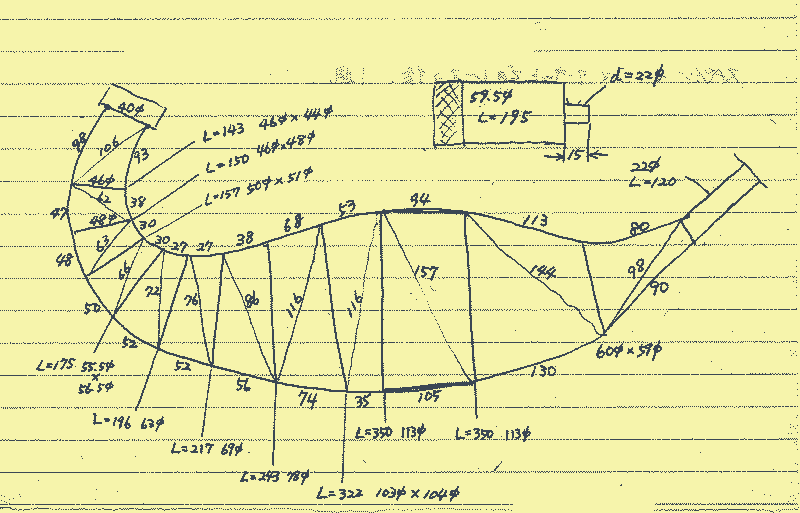 40φ
98
106
93
L=143 46φ×44φ
L=150 46φ×48φ
L=157 50φ×51φ
59.5φ
L=195
d=22φ
15
22φ
L=120
46φ
62
38
47
48φ
30
63
48
66
30
27
27
38
68
53
94
113
80
72
76
86
116
116
157
144
98
90
50
52
52
56
74
35
105
130
60φ×59φ
L=175 55.5φ
×
56.5φ
L=196 63φ
L=217 69φ
L=243 78φ
L=322 103φ×104φ
L=350 113φ
L=350 113φ